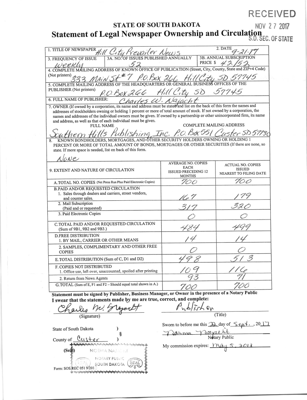 RECEIVED
NOV 27 2017
S.D. SEC. OF STATE
STATE OF SOUTH DAKOTA
Statement of Legal Newspaper Ownership and Circulation
1. TITLE OF NEWSPAPER
Hill City Prevailer News
2. DATE
9-21-17
3. FREQUENCY OF ISSUE
Weekly
3A. NO. OF ISSUES PUBLISHED ANNUALLY
52
3B. ANNUAL SUBSCRIPTION
PRICE $
4. COMPLETE MAILING ADDRESS OF KNOWN OFFICE OF PUBLICATION (Street, City, County, State and Zip+4 Code)
(Not printers)
333 Main St #7 PO Box 266 Hill City SD 57745
5. COMPLETE MAILING ADDRESS OF THE HEADQUARTERS OF GENERAL BUSINESS OFFICES OF THE
PUBLISHER (Not printer)
PO Box 266 Hill City SD 57745
6. FULL NAME OF PUBLISHER:
Charles W. Najacht
7. OWNER (If owned by a corporation, its name and address must be stated and also immediately on the back of this form the names and
FULL NAME
COMPLETE MAILING ADDRESS
Southern Hills Publishing Inc. PO Box 551 Custer SD 57730
8. KNOWN BONDHOLDERS, MORTGAGEES, AND OTHER SECURITY HOLDERS OWNING OR HOLDING 1
PERCENT OR MORE OF TOTAL AMOUNT OF BONDS, MORTGAGES OR OTHER SECURITIES (If there are none, so
state. If more space is needed, list on back of this form.
None
9. EXTENT AND NATURE OF CIRCULATION
AVERAGE NO. COPIES
EACH
ISSUES PRECEDING 12
MONTHS
ACTUAL NO. COPIES
ISSUED
NEAREST TO FILING DATE
A. TOTAL NO. COPIES
700 700
B. PAID AND/OR REQUESTED CIRCULATION
1. Sales through dealers and carriers, street vendors,
and counter sales.
167 179
2. Mail Subscription
(Paid and or requested)
317 320
3. Paid Electronic Copies
0 0
C. TOTAL PAID AND/OR REQUESTED CIRCULATION
(Sum of 9B1, 9B2 and 9B3.)
484 499
D. FREE DISTRIBUTION
1. BY MAIL, CARRIER OR OTHER MEANS
14 14
2. SAMPLES, COMPLIMENTARY AND OTHER FREE
COPIES
0 0
E. TOTAL DISTRIBUTION (Sum of C, D1 and D2)
498 513
F. COPIES NOT DISTRIBUTED
1. Office use, left over, unaccounted, spoiled after printing
109 116
2. Return from News Agents
93 71
G. TOTAL (Sum of E, F1 and F2 - Should equal total shown in A.)
700 700
Statement must be signed by Publisher, Business Manager, or Owner in the presence of a Notary Public
I swear that the statements made by me are true, correct, and complete:
Charles W. Najacht
(Signature)
Publisher
(Title)
State of South Dakota )
County of Custer )
(Seal)
Sworn to before me this day of Sept 2017
Notary Public
My commission expires: May 5, 
NOTARY PUBLIC
SOUTH DAKOTA
SEAL